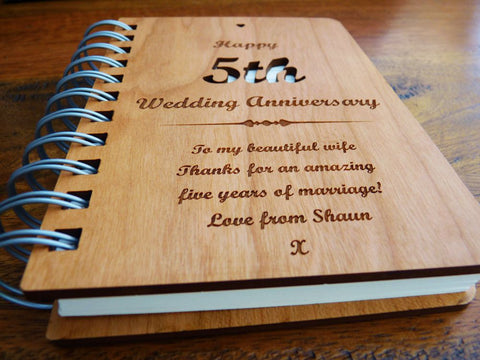 Happy
5th
Wedding Anniversary
To my beautiful wife
Thanks for an amazing
five years of marriage!
Love from Shaun
X